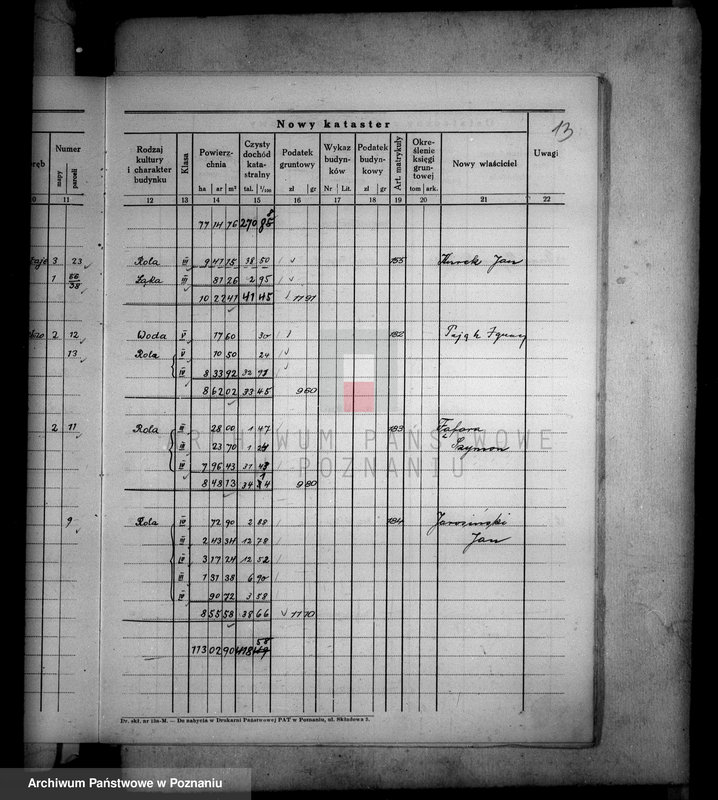 Nowy kataster
13
Numer
mapy parceli
Rodzaj kultury i charakter budynku
Klasa
Powierzchnia
ha ar m²
Czysty dochód katastralny
tal. 1/100
Podatek gruntowy
zł gr
Wykaz budynków
Nr Lit.
Podatek budynkowy
zł gr
Art. matrykuły
Określenie księgi gruntowej
tom ark.
Nowy właściciel
Uwagi
11 12 13 14 15 16 17 18 19 20 21 22
77 14 76 270
3 23 Rola III 9 41 15 38 50 155 Kurek Jan
1 56/38 Łąka III 81 26 2 95
10 22 41 41 45 11 91
2 12 Woda V 17 60 30 182 Pająk Ignacy
13 Rola V 10 50 24
IV 8 33 92 32
8 62 02 33 45 9 60
2 11 Rola III 28 00 1 47 183 Fąfara
23 70 1 Szymon
IV 7 96 43 31
8 48 13 34 9 80
9 Rola IV 72 90 2 88 184 Jarosiński
2 43 34 12 78 Jan
IV 3 17 24 12 52
III 1 31 38 6 90
IV 90 72 3 58
8 55 58 38 66 11 70
58
113 02 90 418
Dr. skł. nr 13a-M. — Do nabycia w Drukarni Państwowej PAT w Poznaniu, ul. Składowa 5.
ARCHIWUM PAŃSTWOWE
W POZNANIU
Archiwum Państwowe w Poznaniu